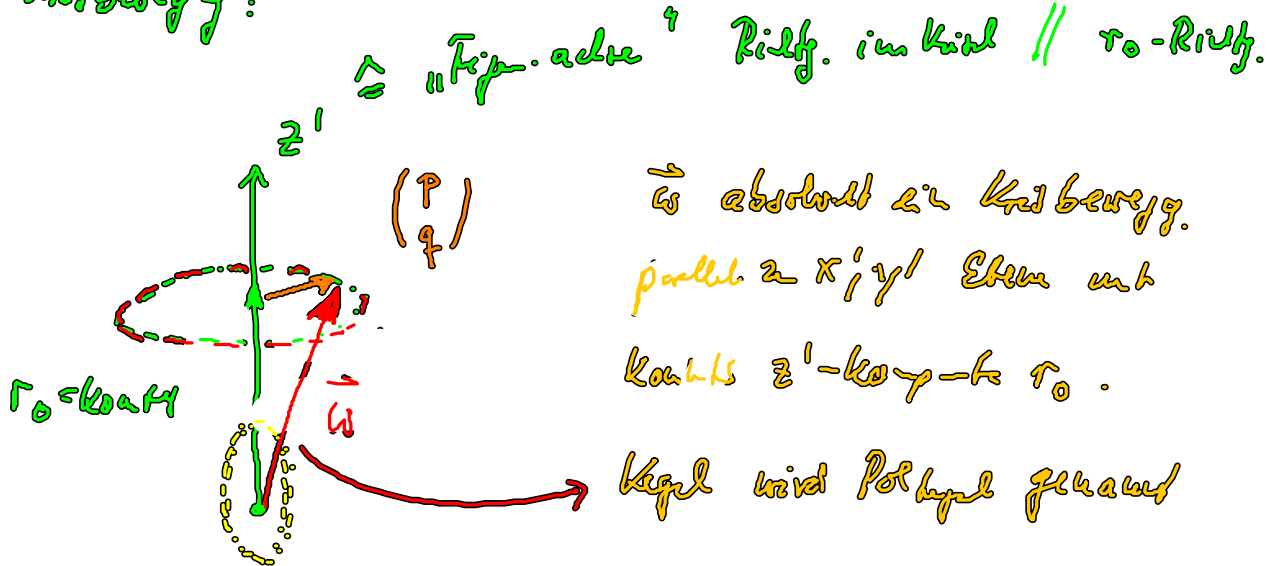 z' ≙ „Figurenachse" Richtg. im Kreisel // r₀-Richtg.
(p q)
ω⃗ absolviert ein Kreisbewegg.
parallel zu x', y' Ebene mit
konstanter z'-Komponente r₀.
r₀ = konst
ω⃗
Kegel wird Polkegel genannt